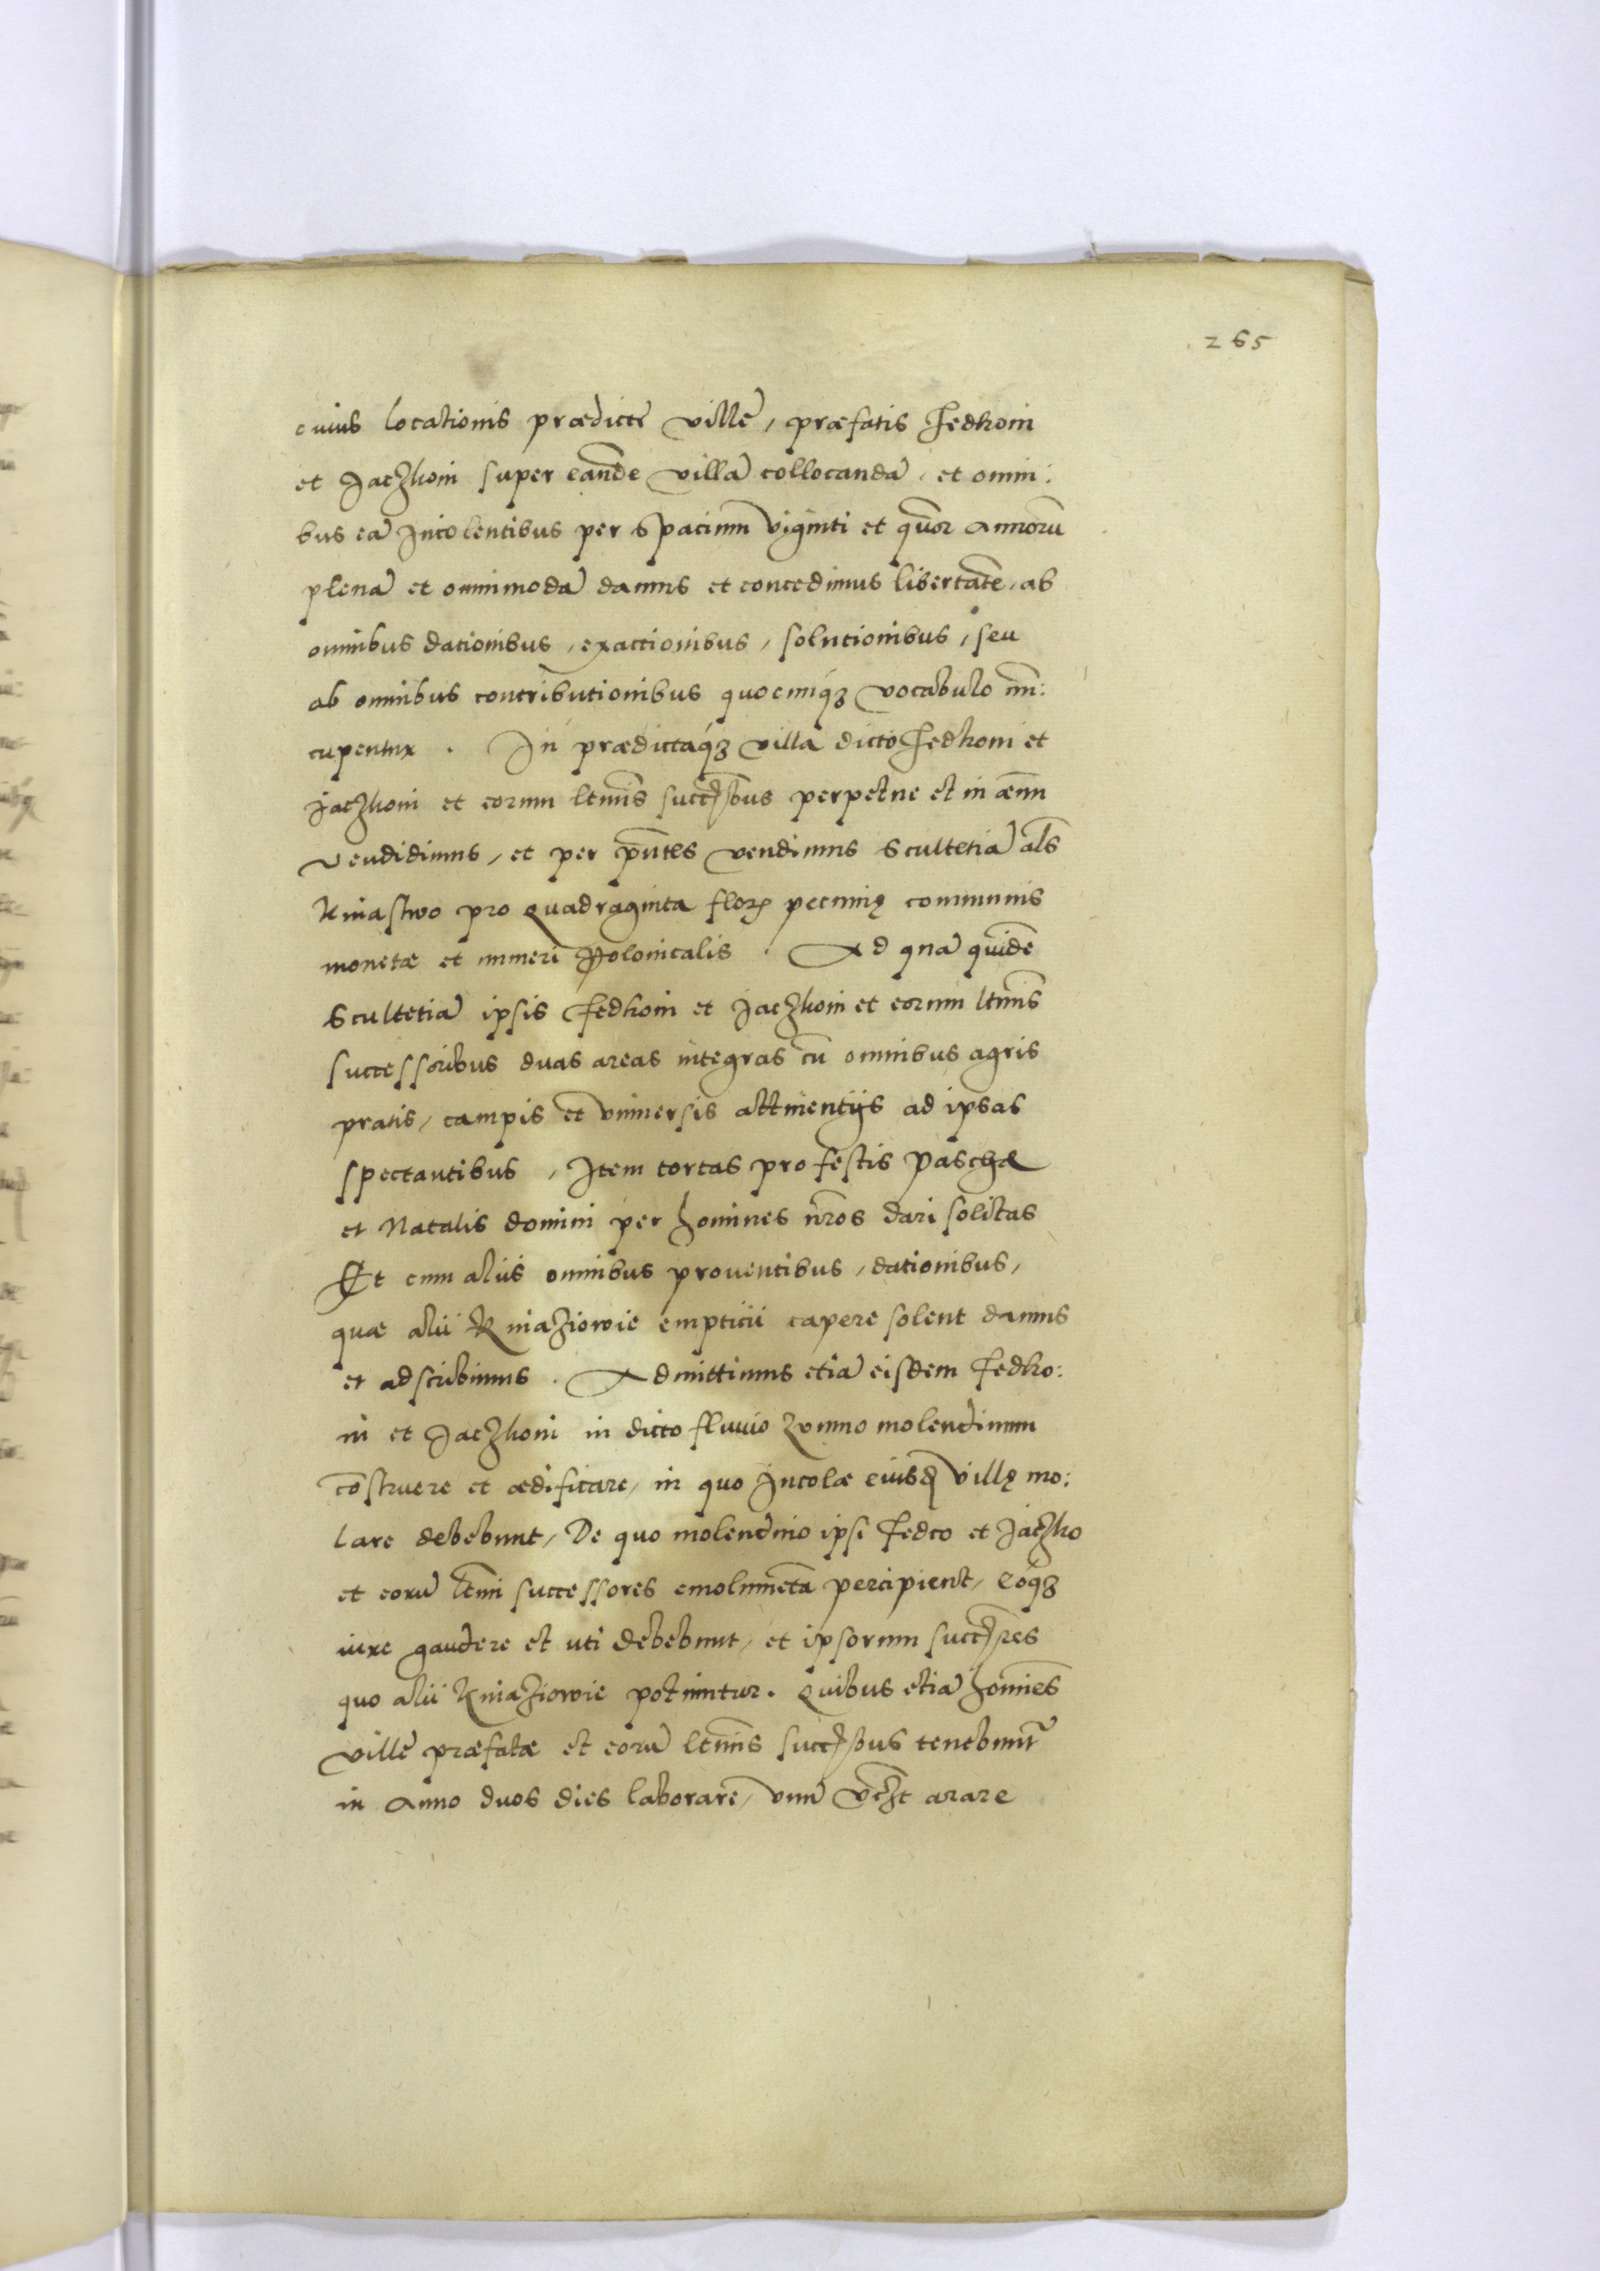 265
cuius locationis prædictę villę, præfatis Fedkoni
et Jaczkoni super eandē villā collocandā, et omni:
bus eā Incolentibus per spacium viginti et quor annorū
plenā et omnimodā damus et concedimus libertatē, ab
omnibus dationibus, exactionibus, solutionibus, seu
ab omnibus contributionibus quocunqz vocabulo nun:
cupentur. In prædictaqz villa dicto Fedkoni et
Jaczkoni et eorum ltmis succssbus perpetue et in æuum
vendidimus, et per pntes vendimus Scultetiā als
Kniastwo pro Quadraginta flor pecunię communis
monetæ et numeri Polonicalis. Ad quā quidē
Scultetiā ipsis Fedkoni et Jaczkoni et eorum ltmis
successoribus duas areas integras cū omnibus agris
pratis, campis et vniuersis attinentijs ad ipsas
spectantibus, Item tortas pro festis Paschæ
et Natalis domini per homines nros dari solitas
Et cum aliis omnibus prouentibus, dationibus,
quæ alii Kniaziowie empticii capere solent damus
et adscribimus. Admittimus etiā eisdem Fedko:
ni et Jaczkoni in dicto fluuio molendinum
cōstruere et ædificare, in quo Incolæ eiusd villę mo:
lare debebunt, De quo molendino ipsi Fedco et Jaczko
et eorū ltmi successores emolumēta percipient, eoqz
iure gaudere et uti debebunt, et ipsorum succssres
quo alii Kniaziowie potiuntur. Quibus etiā homies
villę præfatæ et eorū ltmis succssbus tenebunt
in Anno duos dies laborare, vnū vczt arare